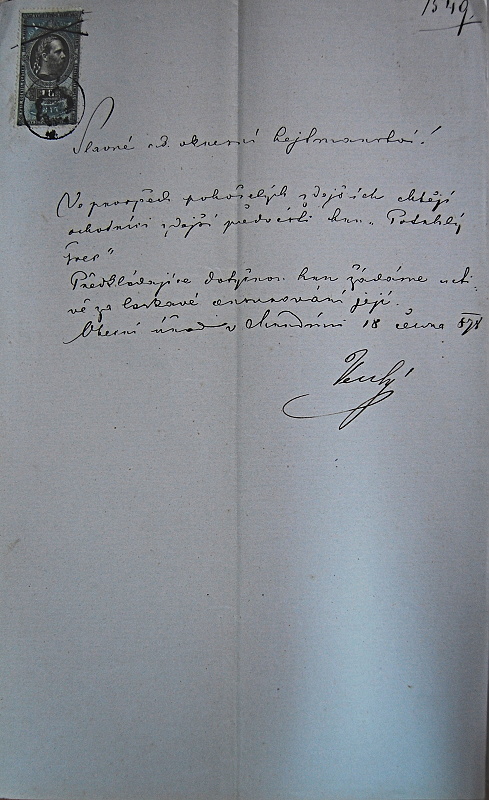 1549.
Slavné c.k. okresní hejtmanství!
Ve prospěch pohořelých zdejších chtějí
ochotníci zdejší předvésti kus „Potrhlý
Předkládajíce dotyčnou hru žádáme ucti-
vě za laskavé censurování její.
Obecní úřad v 18 června 878